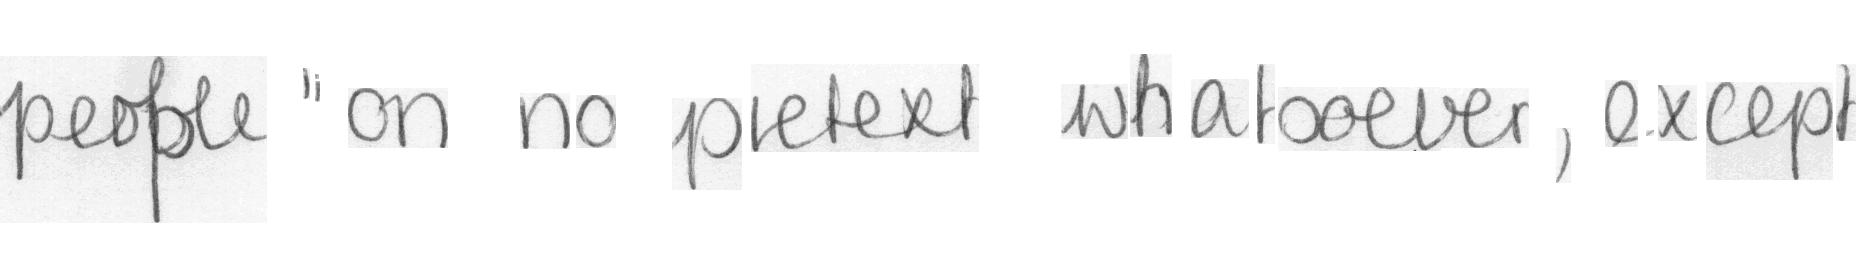 people "on no pretext whatsoever, except